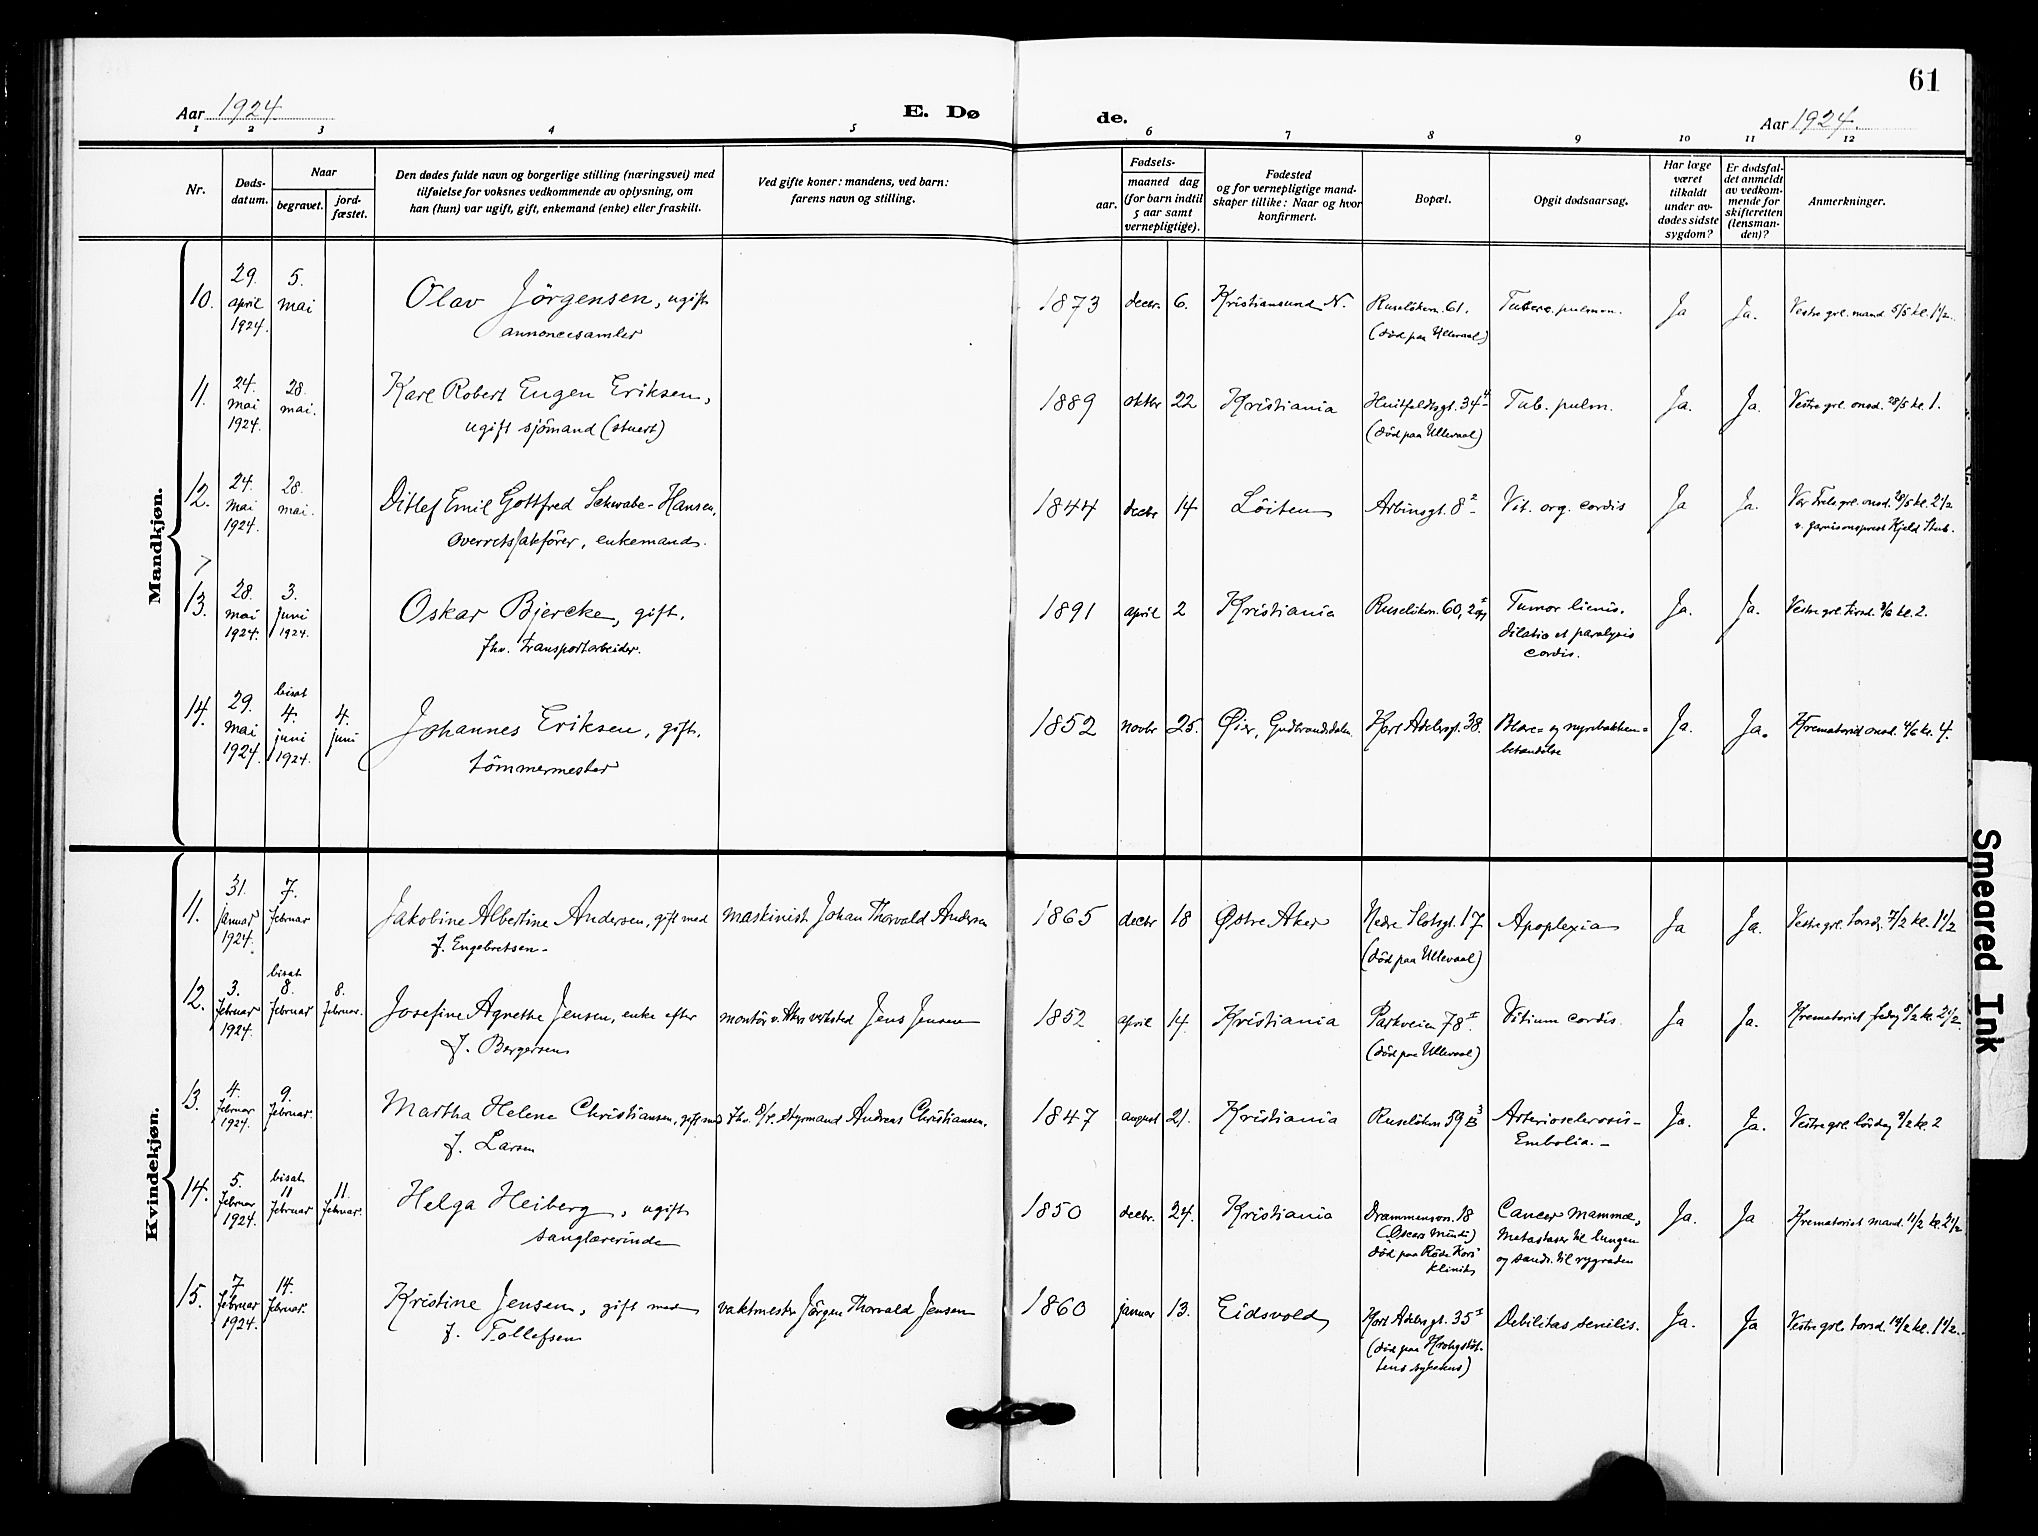 61
Aar 1924.
E. Dø
de.
Aar 1924.
1 2 3 4 5 6 7 8 9 10 11 12
Nr.
Døds-
datum.
Naar
begravet.
jord-
fæstet.
Den dødes fulde navn og borgerlige stilling (næringsvei) med
tilføielse for voksnes vedkommende av oplysning, om
han (hun) var ugift, gift, enkemand (enke) eller fraskilt.
Ved gifte koner: mandens, ved barn:
farens navn og stilling.
aar.
Fødsels-
maaned dag
(for barn indtil
5 aar samt
vernepligtige).
Fødested
og for vernepligtige mand-
skaper tillike: Naar og hvor
konfirmert.
Bopæl.
Opgit dødsaarsag.
Har læge
været
tilkaldt
under av-
dødes sidste
sygdom?
Er dødsfal-
det anmeldt
av vedkom-
mende for
skifteretten
(lensman-
den)?
Anmerkninger.
Mandkjøn.
10.
29.
april
1924.
5.
mai
Olav Jörgensen, ugift
annoncesamler
1873 decbr. 6. Kristiansund N.
Ruselökvn. 61.
(död paa Ullevaal)
Tuberc. pulmon.
Ja
Ja.
Vestre grl. mand. 5/5 kl. 1 1/2.
11.
24.
mai
1924.
28.
mai.
Karl Robert Eugen Eriksen,
ugift sjömand (stuert)
1889 oktbr 22 Kristiania
Huitfeldtsgt. 34 4
(död paa Ullevaal)
Tub. pulm.
Ja.
Ja.
Vestre grl. onsd. 28/5 kl. 1.
12.
24.
mai
1924.
28.
mai.
Ditlef Emil Gottfred Schwabe-Hansen,
overretssakförer, enkemand.
1844 decbr 14 Löiten
Arbinsgt. 8 2
Vit. org. cordis
Ja
Ja.
Vor Frels grl. onsd. 28/5 kl. 2 1/2
v. garnisonsprest Kjeld Stub.
13.
28.
mai
1924.
3.
juni
1924.
Oskar Bjercke, gift.
fhv. transportarbeider.
1891 april 2 Kristiania
Ruselökvn. 60,
Tumor lienis.
dilatio et paralysis
cordis.
Ja.
Ja.
Vestre grl. tirsd. 3/6 kl. 2.
14.
29.
mai
1924.
bisat
4.
juni
1924.
4.
juni
Johannes Eriksen, gift.
tömmermester
1852 novbr 25. Øier, Gudbrandsdalen.
Kort Adelersgt. 38.
Blære- og nyrebækken-
betændelse
Ja.
Ja.
Krematoriet onsd. 4/6 kl. 4.
Kvindekjøn.
11.
31.
januar
1924.
7.
februar
Jakobine Albertine Andersen, gift med
f. Engebretsen.
maskinist Johan Thorvald Andersen
1865 decbr 18 Østre Aker
Nedre Slotsgt. 17
(död paa Ullevaal)
Apoplexia
Ja
Ja.
Vestre grl. torsd. 7/2 kl. 1 1/2
12.
3.
februar
1924.
bisat
8.
februar
8.
februar.
Josefine Agnethe Jensen, enke efter
f. Borgersen
montör v. Akers verksted Jens Jensen
1852 april 14. Kristiania
Parkveien 78 I.
(död paa Ullevaal)
Vitium cordis.
Ja
Ja.
Krematoriet fredag 8/2 kl. 2 1/2
13.
4.
februar
1924.
9.
februar.
Martha Helene Christiansen, gift med
f. Larsen
fhv. styrmand Andreas Christiansen.
1847 august 21. Kristiania
Ruselökvn 59 B 3
Arteriosclerosis-
Embolia.-
Ja.
Ja.
Vestre grl. lördag 9/2 kl. 2
14.
5.
februar
1924.
bisat
11
februar
11.
februar.
Helga Heiberg, ugift
sanglærerinde
1850 decbr. 24. Kristiania
Drammensvn. 18
(Oscars minde)
död paa Röde Kors
klinik
Cancer mammæ,
metastaser til lungen
og sands. til rygraden
Ja.
Ja
Krematoriet mand. 11/2 kl. 2 1/2
15.
7.
februar
1924.
14.
februar.
Kristine Jensen, gift med
f. Tollefsen
vaktmester Jörgen Thorvald Jensen
1860 januar 13. Eidsvold
Kort Adelersgt. 35 I
(död paa Krohgstöt-
tens sykehus)
Debilitas senilis.
Ja.
Ja
Vestre grl. torsd. 14/2 kl. 1 1/2.
Smeared Ink